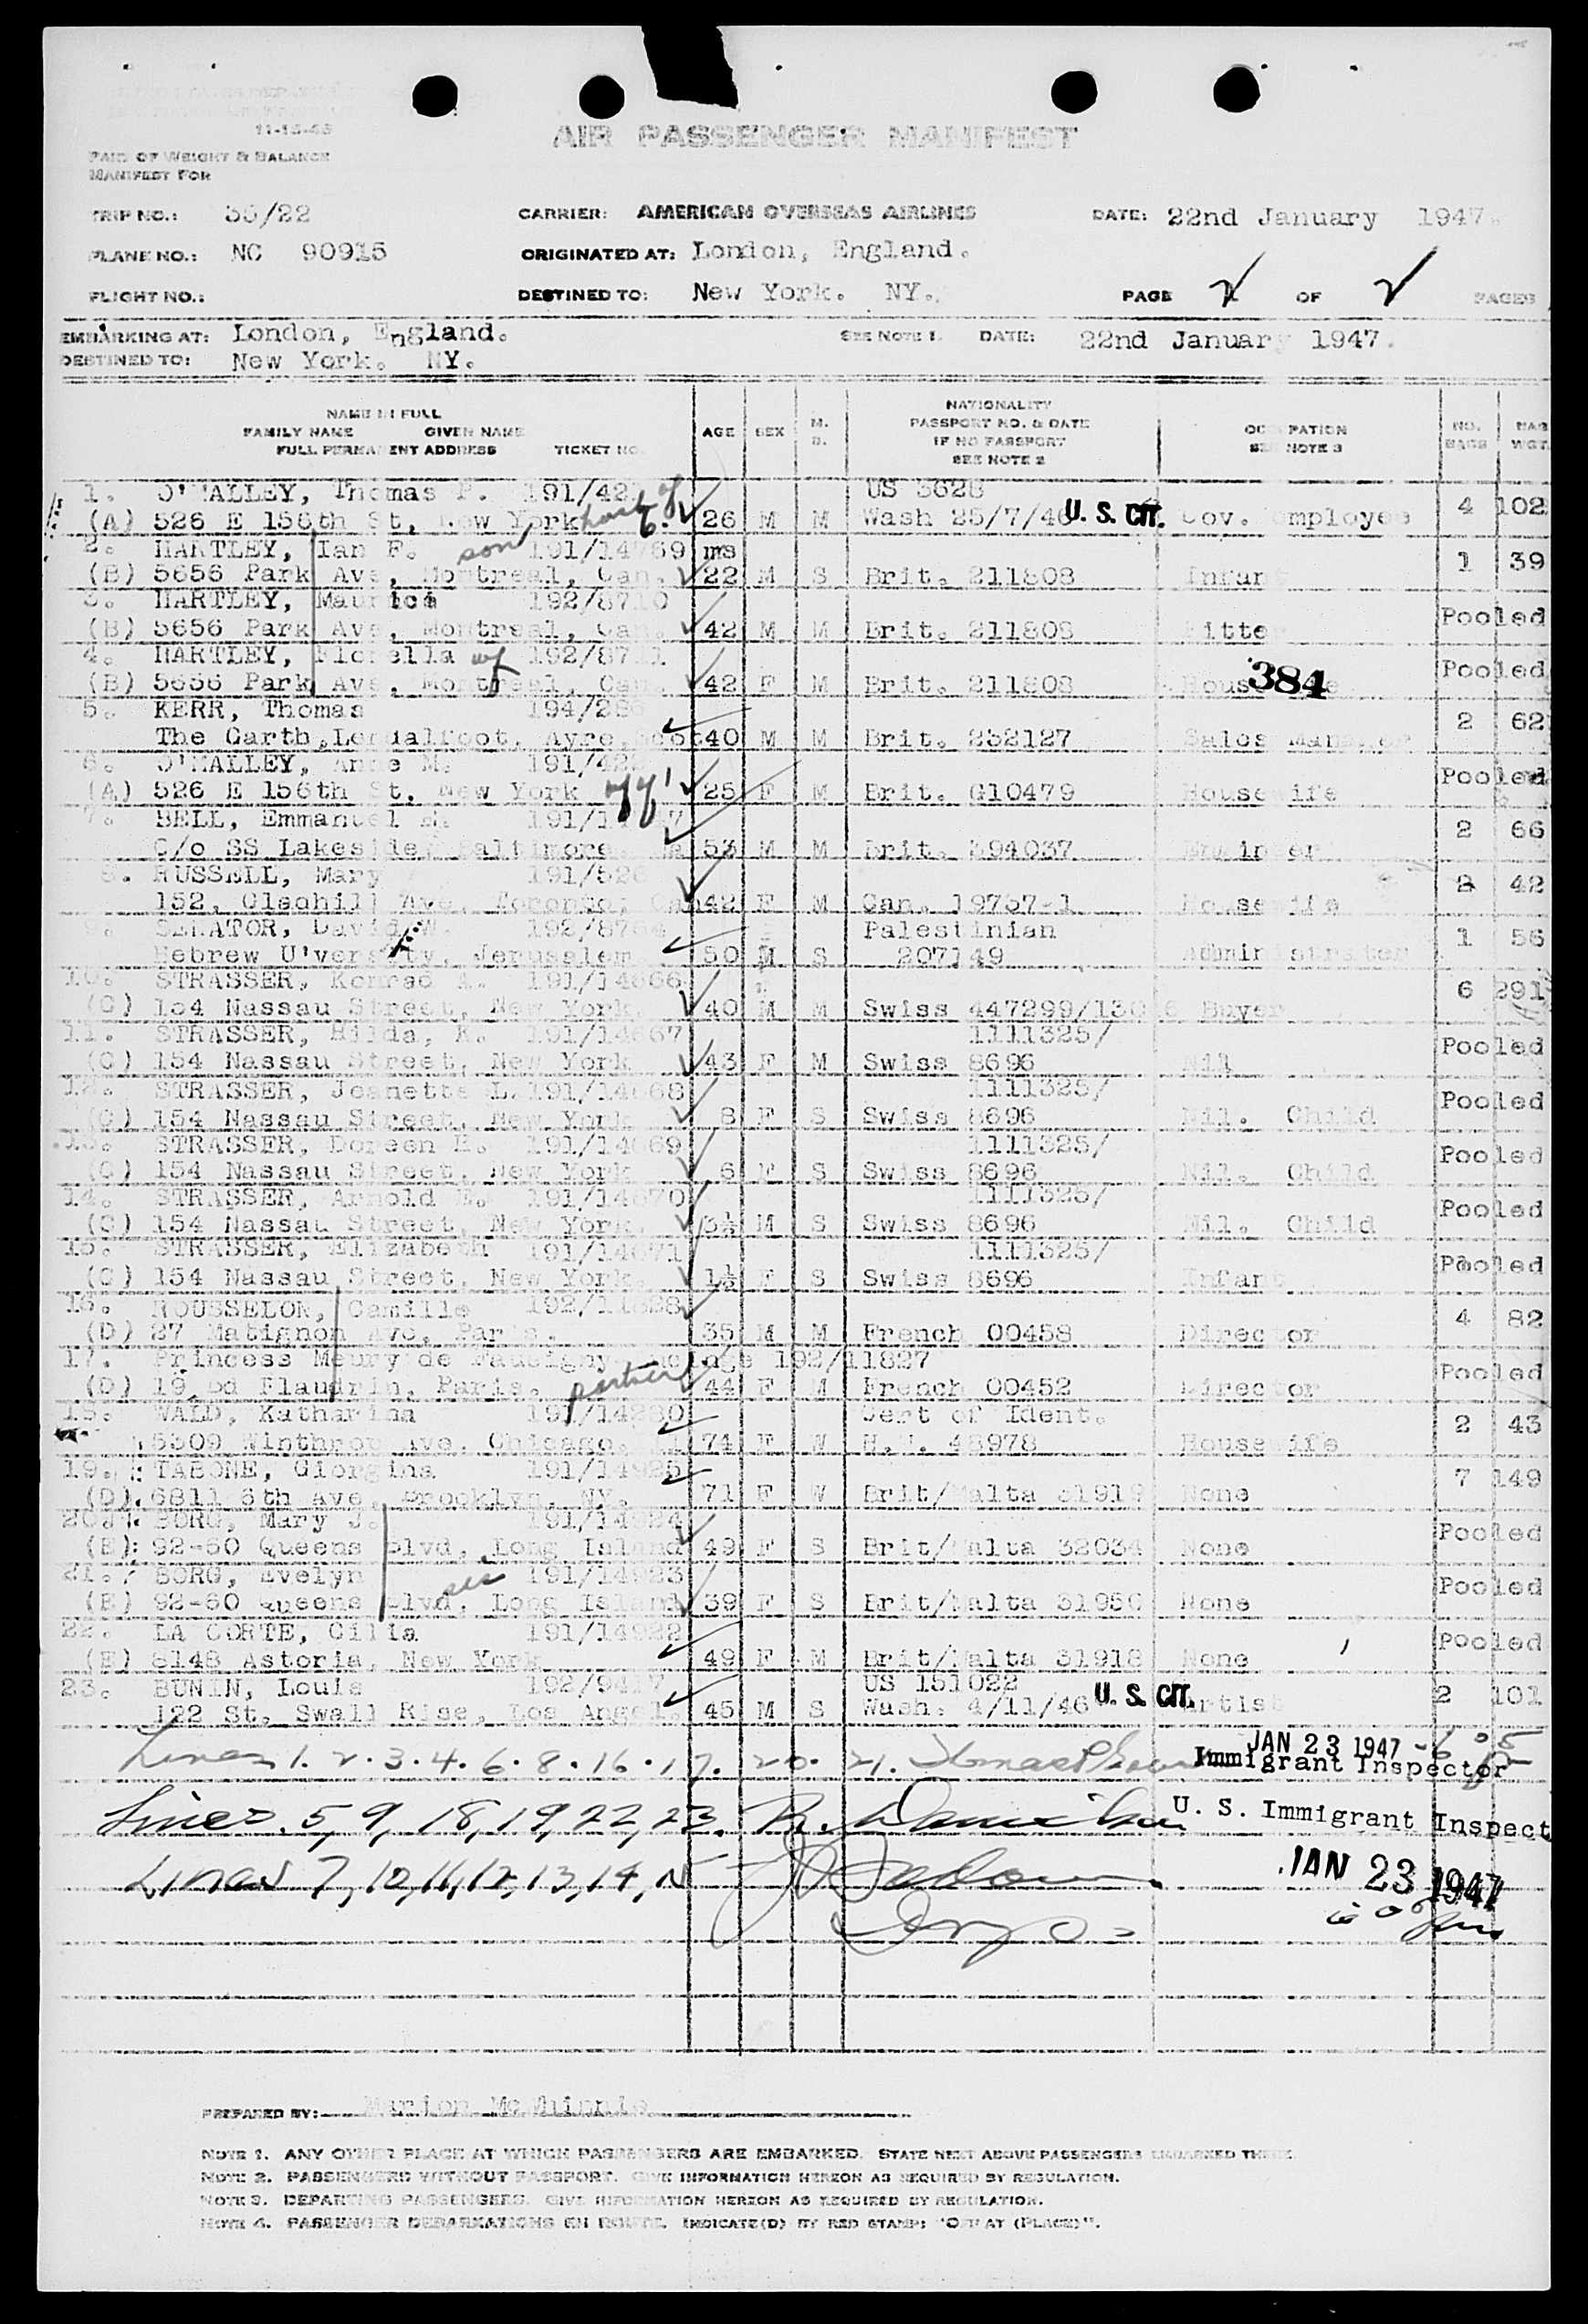 11-15-45
AIR PASSENGER MANIFEST
PART OF WEIGHT & BALANCE
MANIFEST FOR
TRIP NO.: 35/22 CARRIER: AMERICAN OVERSEAS AIRLINES DATE: 22nd January 1947.
PLANE NO.: NC 90915 ORIGINATED AT: London, England.
FLIGHT NO.: DESTINED TO: New York. NY. PAGE OF 2 PAGES
EMBARKING AT: London, England. SEE NOTE 1. DATE: 22nd January 1947.
DESTINED TO: New York. NY.
NAME IN FULL
FAMILY NAME GIVEN NAME
FULL PERMANENT ADDRESS TICKET NO.
AGE SEX M. S.
NATIONALITY
PASSPORT NO. & DATE
IF NO PASSPORT
SEE NOTE 2
OCCUPATION
SEE NOTE 3
NO. BAGS BAG WGT.
1. O'MALLEY, Thomas P. 191/42 US 3628
(A) 526 E 156th St, New York 26 M M Wash 25/7/46 U. S. CIT. Gov. Employee 4 102
2. HARTLEY, Ian F. son 191/14769 ms
(B) 5656 Park Ave, Montreal, Can. 22 M S Brit. 211808 Infant 1 39
3. HARTLEY, Maurice 192/8710
(B) 5656 Park Ave, Montreal, Can. 42 M M Brit. 211808 Fitter Pooled
4. HARTLEY, Florella wf 192/8711
(B) 5656 Park Ave, Montreal, Can. 42 F M Brit. 211808 Housewife 384 Pooled
5. KERR, Thomas 194/286
The Garth, Ayre, Scot 40 M M Brit. 252127 Sales Manager 2 62
6. O'MALLEY, Anne M. 191/422
(A) 526 E 156th St. New York wf of 1 25 F M Brit. G10479 Housewife Pooled
7. BELL, Emmanuel 191/14
C/o SS Lakeside, Baltimore 53 M M Brit. 394037 Engineer 2 66
8. RUSSELL, Mary 191/526
152, Gleghill Ave, Toronto, Can 42 F M Can. 19757-1 Housewife 2 42
9. SENATOR, David W. 192/8764 Palestinian
Hebrew U'versity, Jerusalem 50 M S 207149 Administrator 1 56
10. STRASSER, Konrad A. 191/14666
(C) 154 Nassau Street, New York 40 M M Swiss 447299/1306 Buyer 6 291
11. STRASSER, Hilda, K. 191/14667 1111325/
(C) 154 Nassau Street, New York 43 F M Swiss 8696 Nil Pooled
12. STRASSER, Jeanette L. 191/14668 1111325/
(C) 154 Nassau Street, New York 8 F S Swiss 8696 Nil. Child Pooled
13. STRASSER, Doreen E. 191/14669 1111325/
(C) 154 Nassau Street, New York 6 F S Swiss 8696 Nil. Child Pooled
14. STRASSER, Arnold E. 191/14670 1111325/
(C) 154 Nassau Street, New York. 3½ M S Swiss 8696 Nil. Child Pooled
15. STRASSER, Elizabeth 191/14671 1111325/
(C) 154 Nassau Street, New York. 1½ F S Swiss 8696 Infant Pooled
16. ROUSSELON, Camille 192/11828
(D) 27 Matignon Ave, Paris. 35 M M French 00458 Director 4 82
17. Princess Meury de Faucigny Lucinge 192/11827
(D) 19, Bd Flaudrin, Paris. partner 44 F M French 00452 Director Pooled
18. WALD, Katharina 191/14280 Cert of Ident.
5309 Winthrop Ave. Chicago. 74 F W H.N. 48978 Housewife 2 43
19. TABONE, Giorgina 191/14925
(D). 6811 6th Ave, Brooklyn, NY. 71 F W Brit/Malta 31919 None 7 149
20. BORG, Mary J. 191/14924
(E) 92-60 Queens Blvd, Long Island 49 F S Brit/Malta 32034 None Pooled
21. BORG, Evelyn 191/14923
(E) 92-60 Queens Blvd, Long Island 39 F S Brit/Malta 31950 None Pooled
22. LA CORTE, Cilia 191/14922
(E) 8148 Astoria, New York 49 F M Brit/Malta 31918 None Pooled
23. BUNIN, Louis 192/9417 US 151022
122 St, Swall Rise, Los Angel. 45 M S Wash. 4/11/46 U. S. CIT. Artist 2 101
Lines 1. 2. 3. 4. 6. 8. 16. 17. 20. 21. JAN 23 1947
Immigrant Inspector
Lines 5, 9, 18, 19, 22, 23. U. S. Immigrant Inspect
Lines 7, 10, 11, 12, 13, 14, 15 JAN 23 1947
PREPARED BY: Marion
NOTE 1. ANY OTHER PLACE AT WHICH PASSENGERS ARE EMBARKED. STATE NEXT ABOVE PASSENGERS EMBARKED THERE.
NOTE 2. PASSENGERS WITHOUT PASSPORT. GIVE INFORMATION HEREON AS REQUIRED BY REGULATION.
NOTE 3. DEPARTING PASSENGERS. GIVE INFORMATION HEREON AS REQUIRED BY REGULATION.
NOTE 4. PASSENGER DEBARKATIONS EN ROUTE. INDICATE(D) BY RED STAMP: "OFF AT (PLACE)".